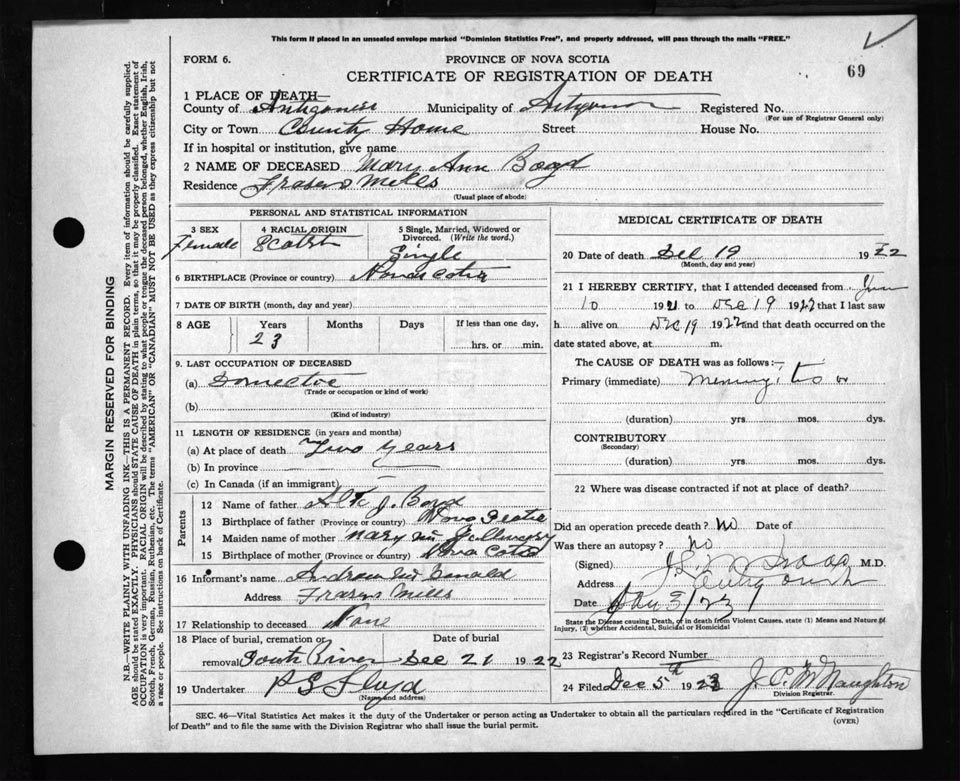 This form if placed in an unsealed envelope marked "Dominion Statistics Free", and properly addressed, will pass through the mails "FREE."
FORM 6.
PROVINCE OF NOVA SCOTIA
CERTIFICATE OF REGISTRATION OF DEATH
69
1 PLACE OF DEATH—
County of Antigonish Municipality of Antigonish Registered No.
(For use of Registrar General only)
City or Town County Home Street House No.
If in hospital or institution, give name
2 NAME OF DECEASED Mary Ann Boyd
Residence Frasers Mills
(Usual place of abode)
PERSONAL AND STATISTICAL INFORMATION
3 SEX 4 RACIAL ORIGIN 5 Single, Married, Widowed or Divorced. (Write the word.)
Female Scotch Single
6 BIRTHPLACE (Province or country) Nova Scotia
7 DATE OF BIRTH (month, day and year)
8 AGE Years Months Days If less than one day,
23 hrs. or min.
9. LAST OCCUPATION OF DECEASED
(a) Domestic
(Trade or occupation or kind of work)
(b)
(Kind of industry)
11 LENGTH OF RESIDENCE (in years and months)
(a) At place of death Two years
(b) In province
(c) In Canada (if an immigrant)
Parents
12 Name of father Alex J. Boyd
13 Birthplace of father (Province or country) Nova Scotia
14 Maiden name of mother Mary
15 Birthplace of mother (Province or country) Nova Scotia
16 Informant's name Andrew
Address Frasers Mills
17 Relationship to deceased None
18 Place of burial, cremation or removal Date of burial
South River Dec 21 1922
19 Undertaker P S Floyd
(Name and address)
MEDICAL CERTIFICATE OF DEATH
20 Date of death Dec 19 1922
(Month, day and year)
21 I HEREBY CERTIFY, that I attended deceased from
10 1921 to Dec 19 1922 that I last saw
h alive on Dec 19 1922 and that death occurred on the
date stated above, at m.
The CAUSE OF DEATH was as follows:
Primary (immediate) Meningitis
(duration) yrs. mos. dys.
CONTRIBUTORY
(Secondary)
(duration) yrs. mos. dys.
22 Where was disease contracted if not at place of death?
Did an operation precede death? No Date of
Was there an autopsy? No
(Signed) M.D.
Address Antigonish
Date Jan 3/23
State the Disease causing Death, or in death from Violent Causes, state (1) Means and Nature of
Injury, (2) whether Accidental, Suicidal or Homicidal
23 Registrar's Record Number
24 Filed Dec 5th 1923 J. C. McNaughton
Division Registrar.
SEC. 46—Vital Statistics Act makes it the duty of the Undertaker or person acting as Undertaker to obtain all the particulars required in the "Certificate of Registration
of Death" and to file the same with the Division Registrar who shall issue the burial permit.
(OVER)
MARGIN RESERVED FOR BINDING
N.B.—WRITE PLAINLY WITH UNFADING INK—THIS IS A PERMANENT RECORD. Every item of information should be carefully supplied.
AGE should be stated EXACTLY. PHYSICIANS should STATE CAUSE OF DEATH in plain terms, so that it may be properly classified. Exact statement of
OCCUPATION is very important. RACIAL ORIGIN will be described by stating to what people or tongue the deceased person belonged, whether English, Irish,
Scotch, French, German, Russian, Ruthenian, etc. The terms "AMERICAN" or "CANADIAN" MUST NOT BE USED as they express citizenship but not
a race or people. See instructions on back of Certificate.